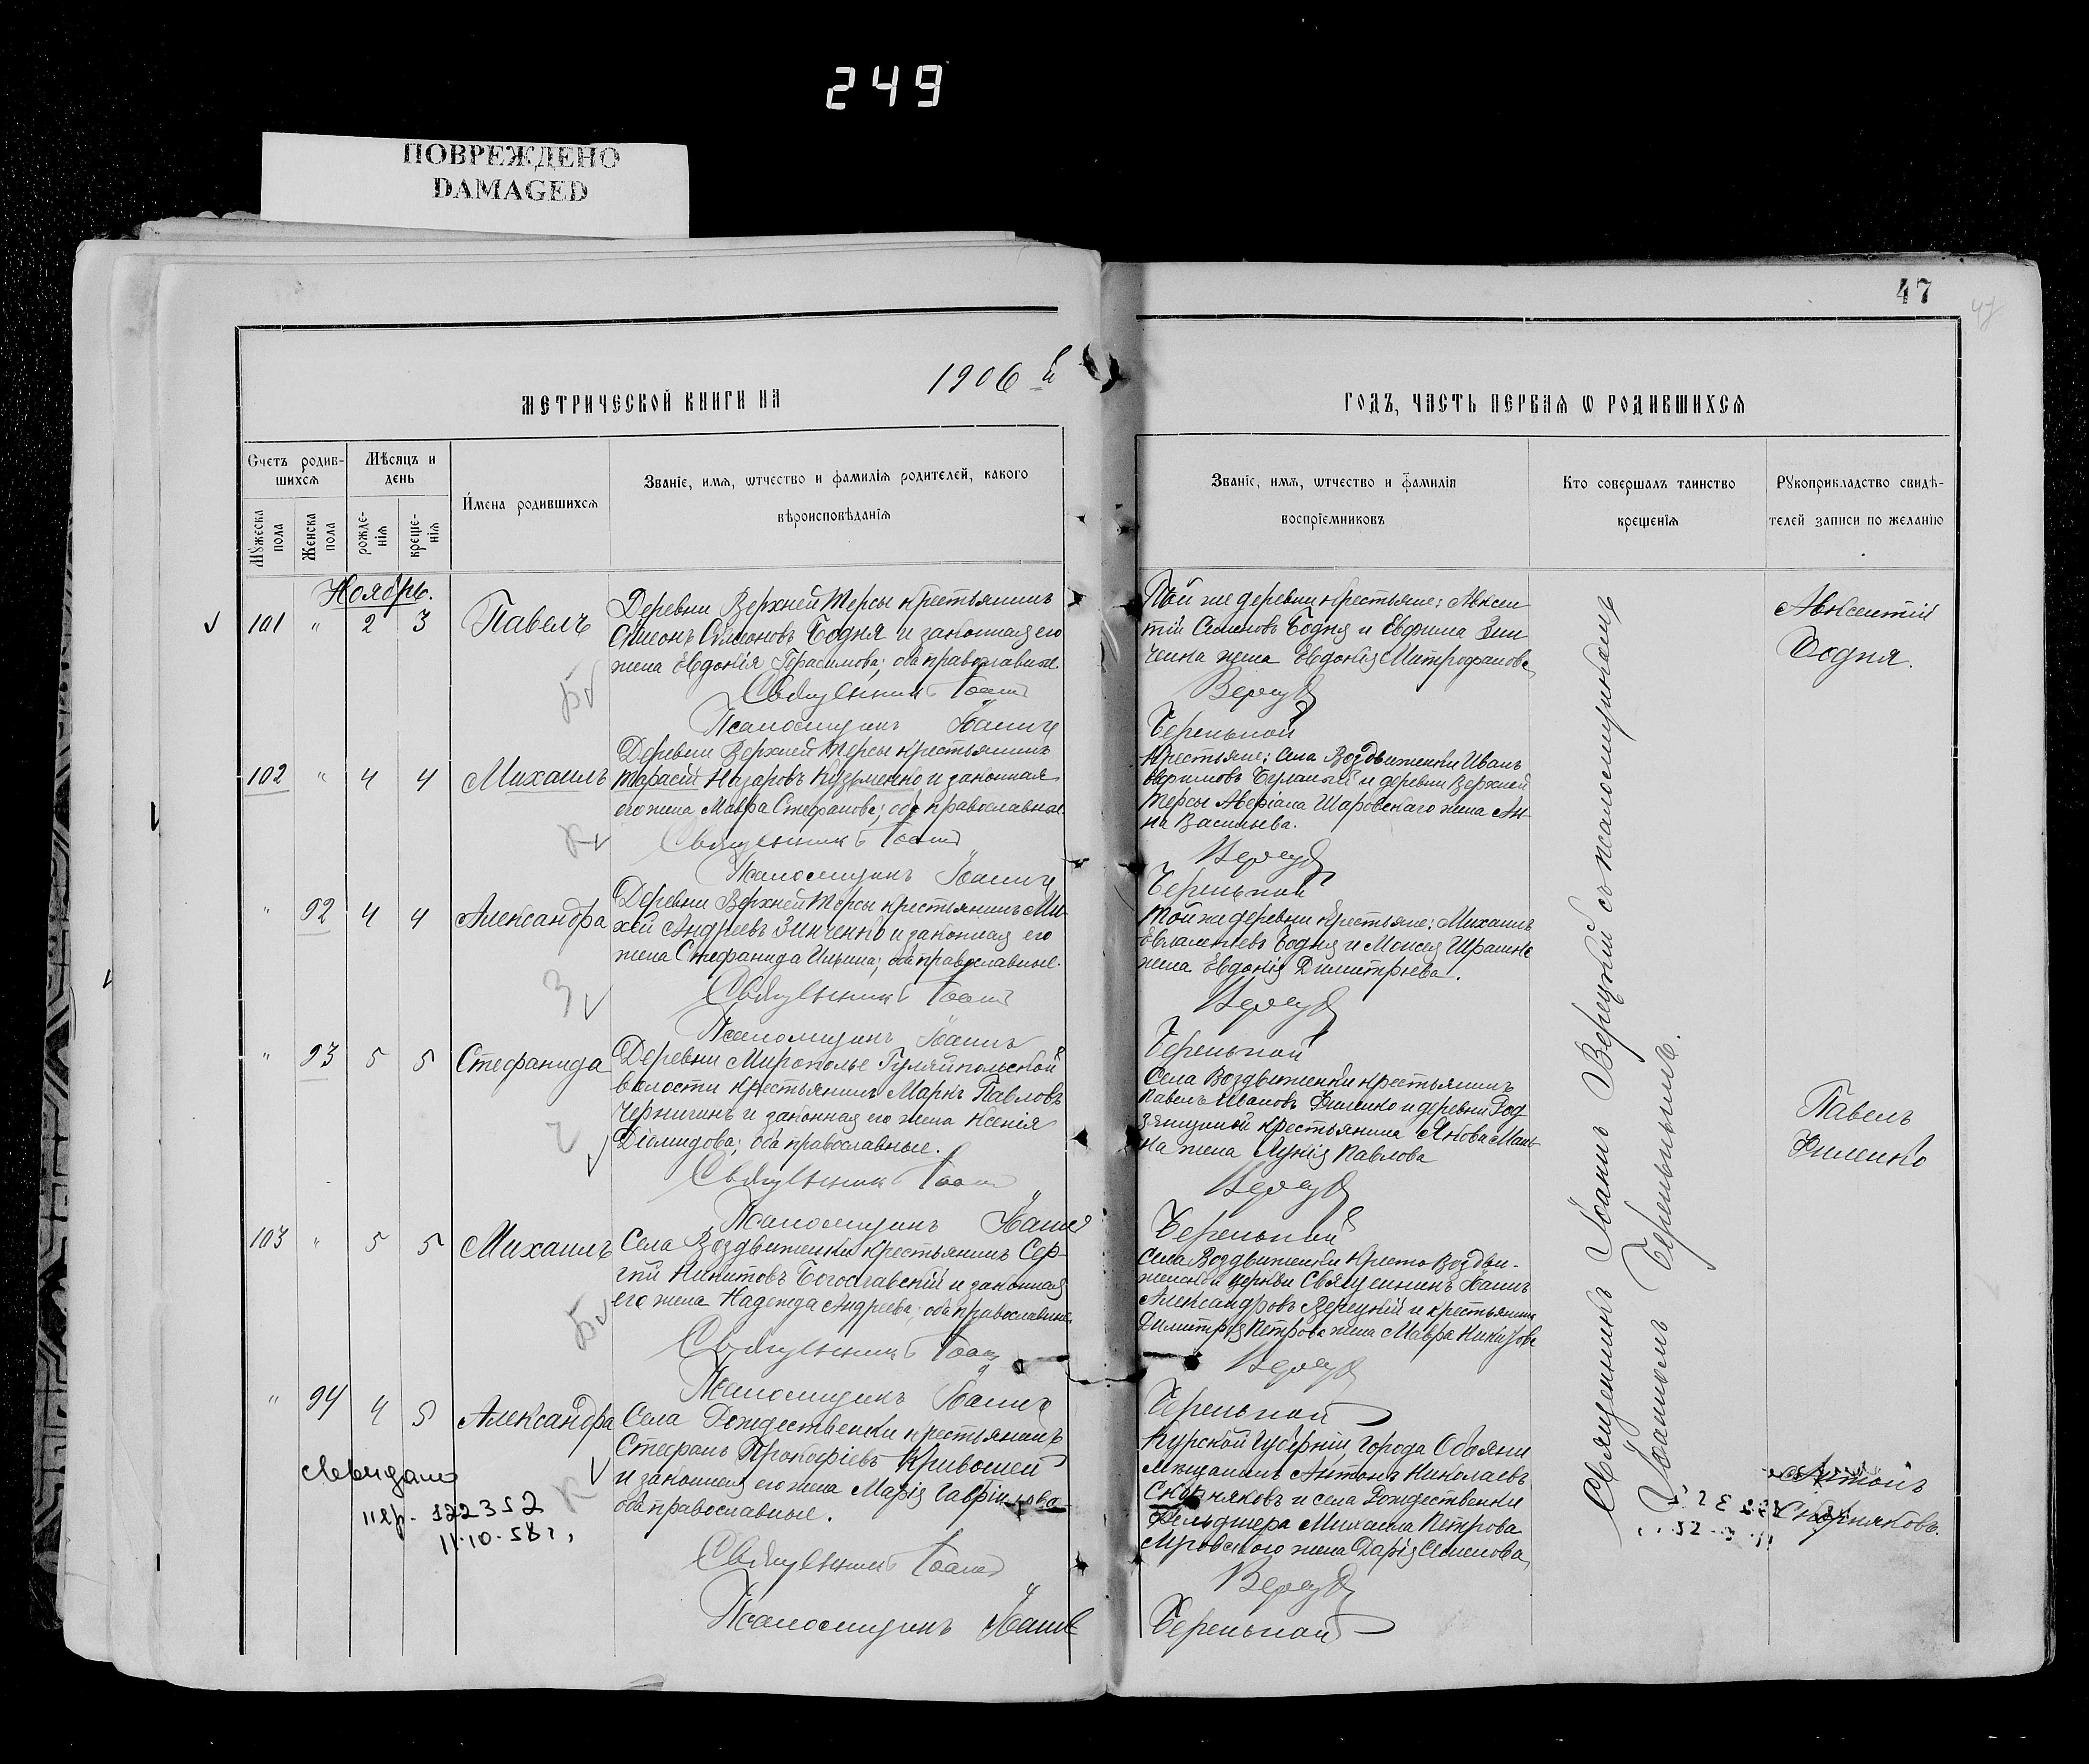 249
ПОВРЕЖДЕНО
DAMAGED
47
47
1906 й
МЕТРИЧЕСКОЙ КНИГИ НА
ГОДЪ, ЧАСТЬ ПЕРВАЯ Ѡ РОДИВШИХСЯ
Счетъ родив-
шихся
Мѣсяцъ и
день
Мужеска
пола
Женска
пола
рожде-
нія
креще-
нія
Имена родившихся
Званіе, имя, ѡтчество и фамилія родителей, какого
вѣроисповѣданія
Званіе, имя, ѡтчество и фамилія
воспріемниковъ
Кто совершалъ таинство
крещенія
Рукоприкладство свидѣ-
телей записи по желанію
Ноябрь.
101 " 2 3 Павелъ
Деревни Верхней Терсы крестьянинъ
Симеонъ Симоновъ Бодня и законная его
жена Евдокія Герасимова; оба православные.
Священникъ Іоаннъ
Псаломщикъ Іоаннъ
Той же деревни крестьяне: Авксен
тій Симеоновъ Бодня и Евфима Зин
ченка жена Евдокія Митрофанова
Верецкій
Березьной
Авксентій
Бодня.
102 " 4 4 Михаилъ
Деревни Верхней Терсы крестьянинъ
Тарасій Назаровъ Кузьменко и законная
его жена Мавра Стефанова; оба православные
Священникъ Іоаннъ
Псаломщикъ Іоаннъ
Крестьяне: села Воздвиженки Иванъ
и деревни Верхней
Терсы Аверіана Шаровскаго жена Ан-
на Васильева.
Верецкій
" 92 4 4 Александра
Деревни Верхней Терсы крестьянинъ Ми-
хей Андреевъ Зинченко и законная его
жена Стефанида Ильина; оба православные.
Священникъ Іоаннъ
Псаломщикъ Іоаннъ
Той же деревни крестьяне: Михаилъ
Бодня и Моисея
жена Евдокія Димитріева.
Верецкій
" 93 5 5 Стефанида
Деревни Мирополье Гуляйпольской
волости крестьянинъ Маркъ Павловъ
Чернигинъ и законная его жена Ксенія
Діомидова; оба православные.
Священникъ Іоаннъ
Псаломщикъ Іоаннъ
Села Воздвиженки крестьянинъ
Павелъ Ивановъ Фименко и деревни
крестьянина Якова
на жена Лукія Павлова
Верецкій
Павелъ
Фименко
103 " 5 5 Михаилъ
Села Воздвиженки крестьянинъ Сер-
гій Никитовъ Богославскій и законная
его жена Надежда Андреева; оба православные.
Священникъ Іоаннъ
Псаломщикъ Іоаннъ
Села Воздвиженки Кресто Воздви-
женской церкви Священникъ Іоаннъ
Александровъ Верецкій и крестьянина
Димитрія Петрова жена Мавра
Верецкій
" 94 4 5 Александра
Села Рождественки крестьянинъ
Стефанъ Прокофіевъ Кривошей
и законная его жена Марія Гавріилова
оба православные.
Священникъ Іоаннъ
Псаломщикъ Іоаннъ
Курской губерніи, города Обояни
мещанинъ Антонъ Николаевъ
Скорняковъ и села Рождественки
Фельдшера Михаила Петрова
жена Дарія Семенова
Верецкій
Антонъ
Скорняковъ.
122352
11-10-58 г,
Священникъ Іоаннъ Верецкій съ псаломщикомъ
Іоанномъ